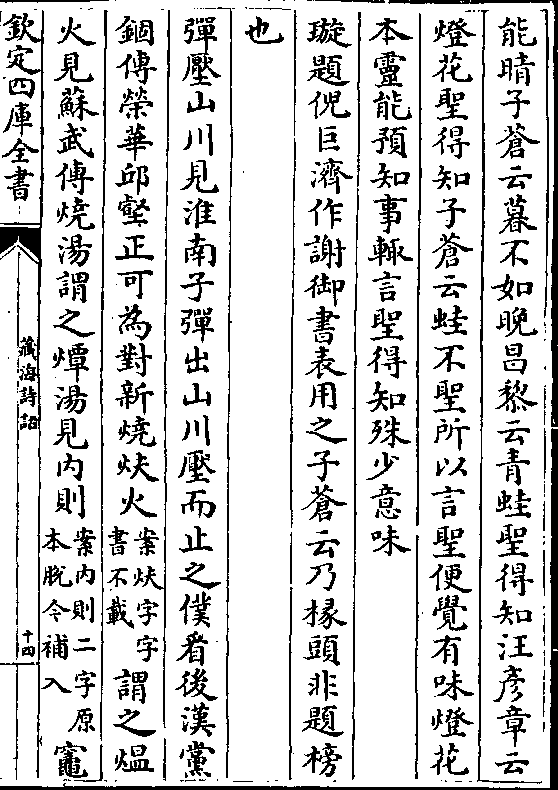 能晴子蒼云暮不如晚昌黎云青蛙聖得知汪彥章云
燈花聖得知子蒼云蛙不聖所以言聖便覺有味燈花
本靈能預知事輙言聖得知殊少意味
璇題倪巨濟作謝御書表用之子蒼云乃椽頭非題榜
也
彈壓山川見淮南子彈出山川壓而止之僕看後漢黨
錮傳榮華邱壑正可為對新燒炗火案炗字字書不載謂之熅
火見蘇武傳燒湯謂之燂湯見内則案内則二字原本脱今補入竈
欽定四庫全書
藏海詩話
十四